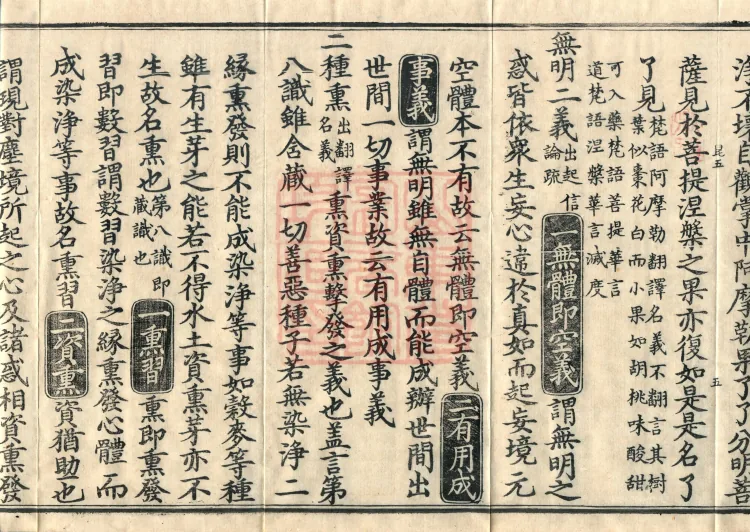 淨不壞自觀掌中阿摩勒果了了分明菩
薩見於菩提涅槃之果亦復如是是名了
了見梵語阿摩勒翻譯名義不翻言其樹
葉似棗花白而小果如胡桃味酸甜
可入藥梵語菩提華言
道梵語涅槃華言滅度
無明二義出起信
論疏
一無體即空義謂無明之
惑皆依衆生妄心違於真如而起妄境元
空體本不有故云無體即空義二有用成
事義謂無明雖無自體而能成辦世間出
世間一切事業故云有用成事義
二種熏出翻譯
名義熏資熏擊發之義也蓋言第
八識雖含藏一切善惡種子若無染淨二
緣熏發則不能成染淨等事如穀麥等種
雖有生芽之能若不得水土資熏芽亦不
生故名熏也第八識即
藏識也
一熏習熏即熏發
習即數習謂數習染淨之緣熏發心體而
成染淨等事故名熏習二資熏資猶助也
謂現對塵境所起之心及諸惑相資熏發
昆五
五